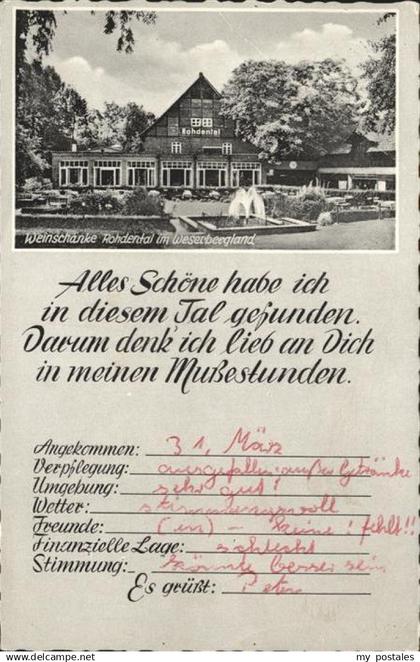 Rohdental
Weinschänke Rohdental im Weserbergland
Alles Schöne habe ich
in diesem Tal gefunden.
Darum denk' ich lieb an Dich
in meinen Mußestunden.
Angekommen: 31. März
Verpflegung: ausgefallen außer Getränke
Umgebung: sehr gut!
Wetter: stimmungsvoll
Freunde: (in) - keine! fehlt!!
Finanzielle Lage: schlecht
Stimmung: könnte besser sein
Es grüßt: Peter
my postales